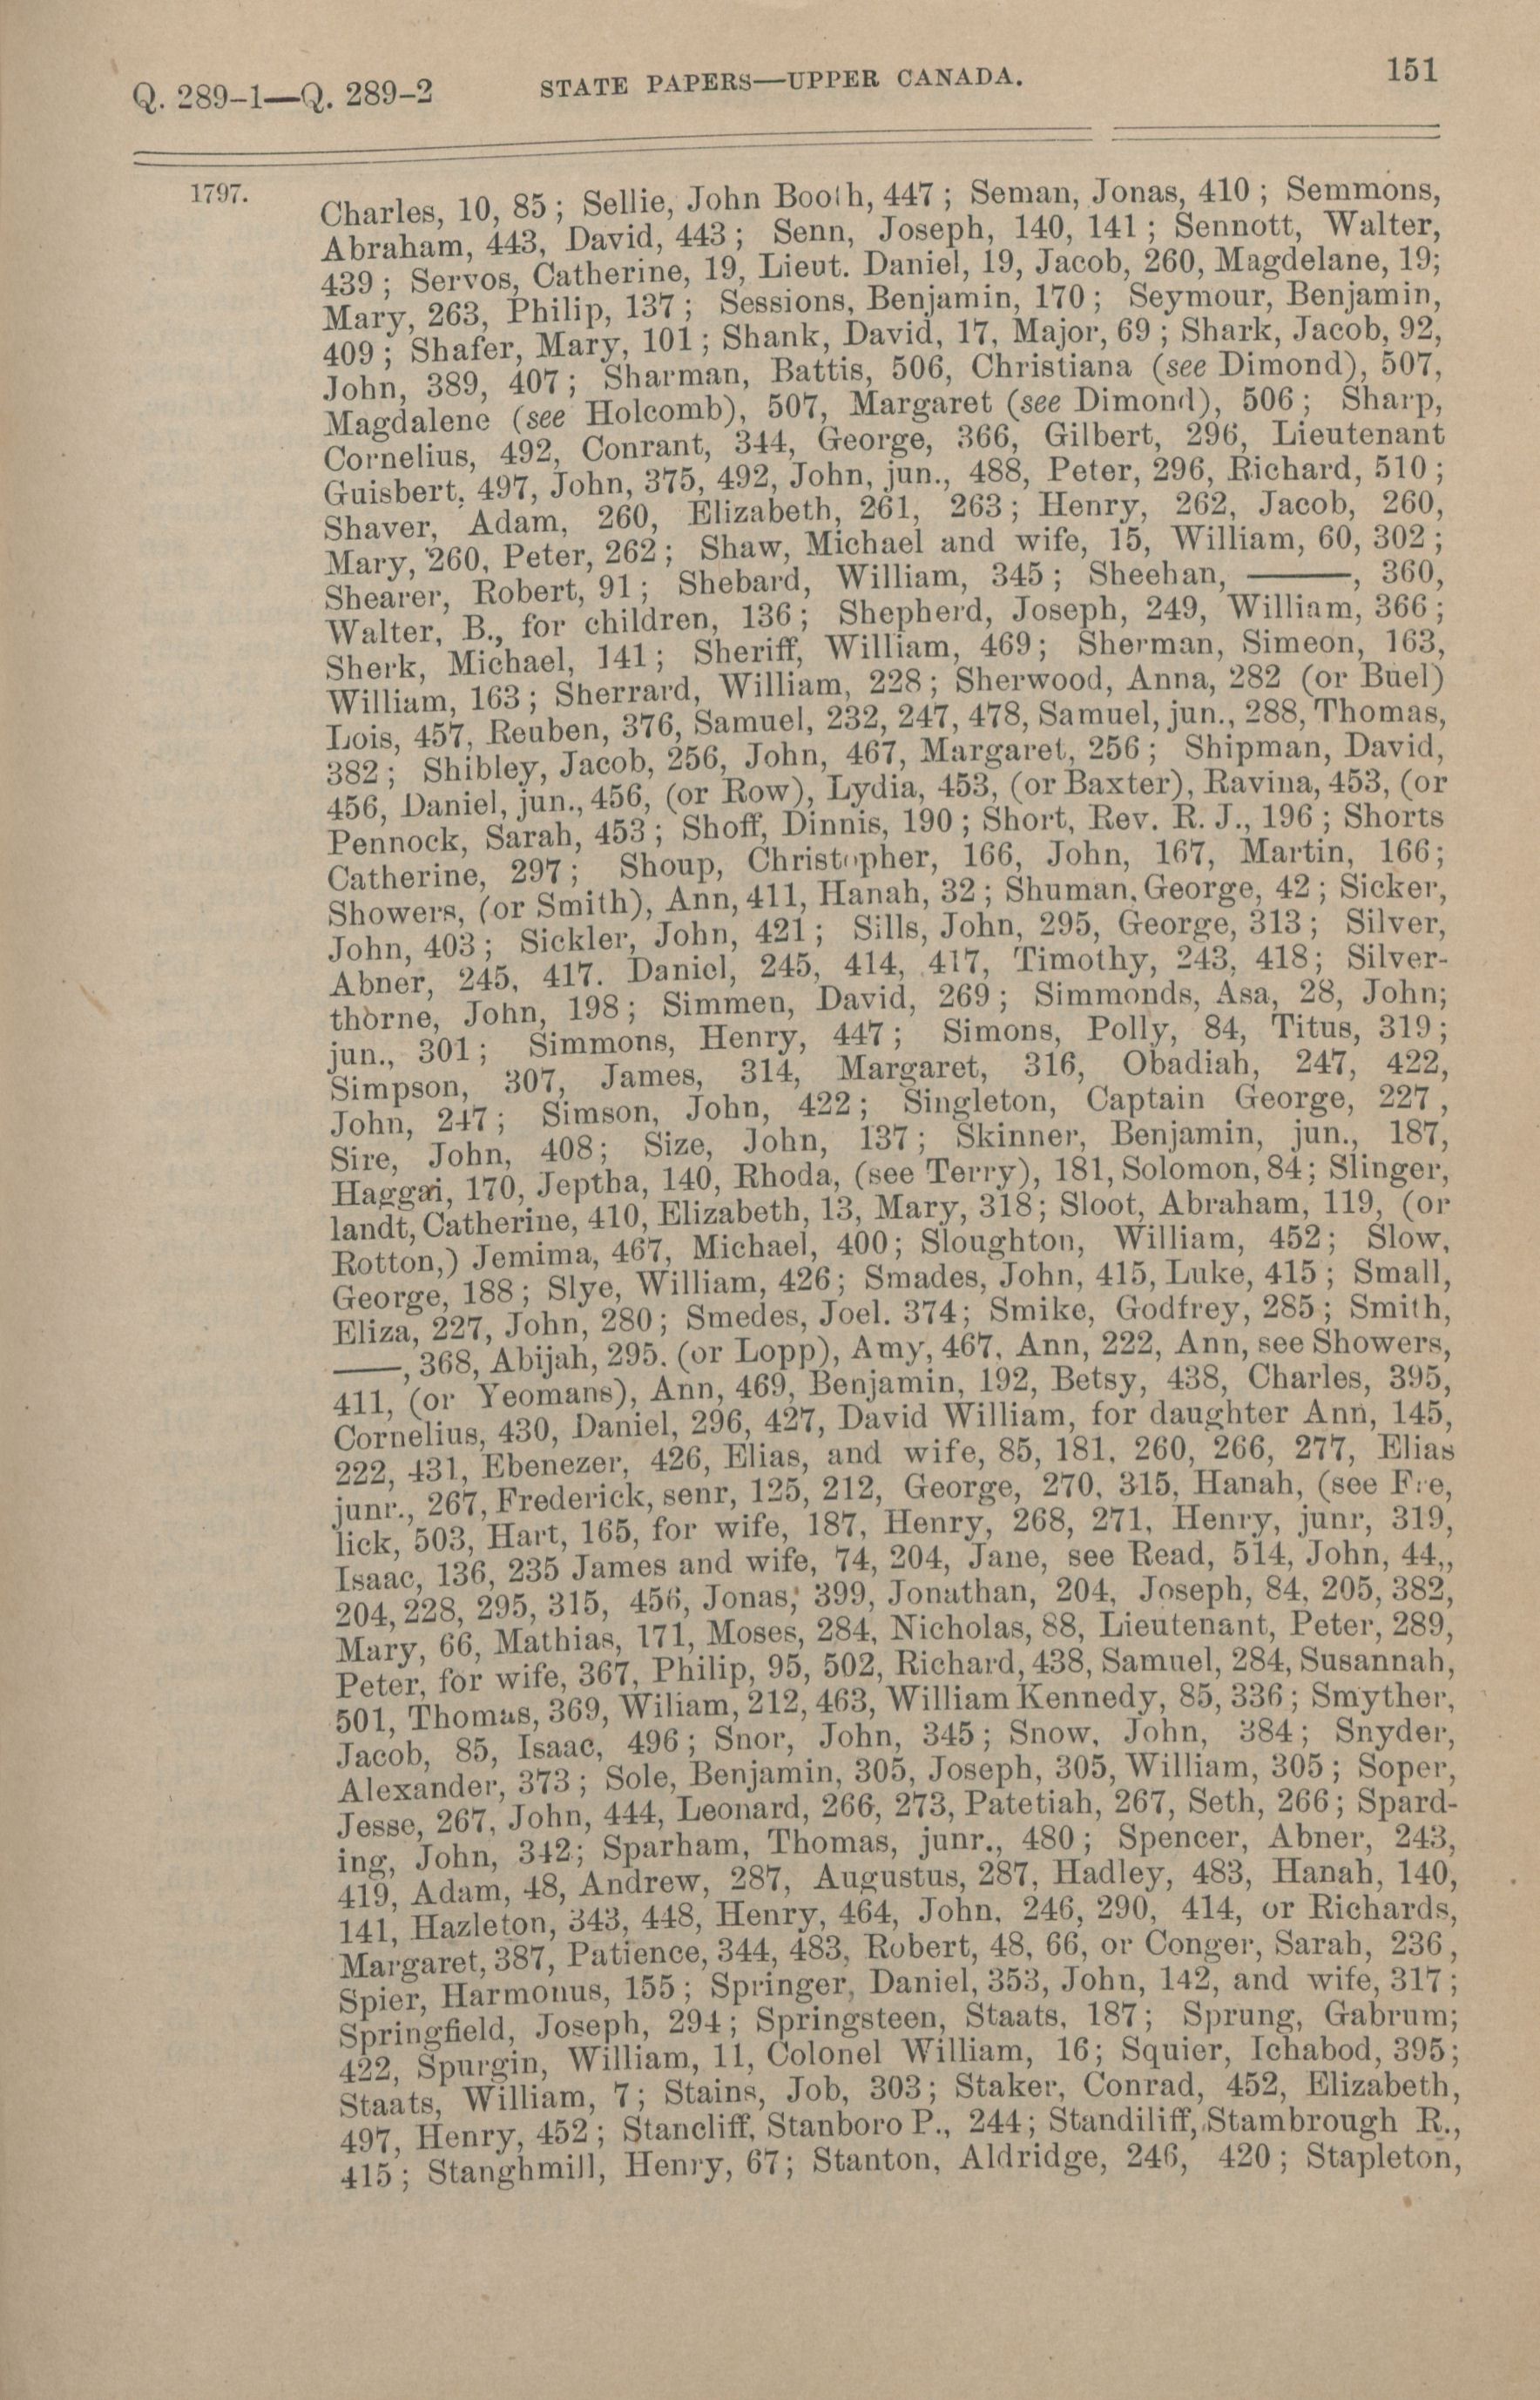 Q. 289-1—Q. 289-2 STATE PAPERS—UPPER CANADA. 151
1797.
Charles, 10, 85 ; Sellie, John Booth, 447 ; Seman, Jonas, 410 ; Semmons,
Abraham, 443, David, 443 ; Senn, Joseph, 140, 141 ; Sennott, Walter,
439 ; Servos, Catherine, 19, Lieut. Daniel, 19, Jacob, 260, Magdelane, 19;
Mary, 263, Philip, 137 ; Sessions, Benjamin, 170 ; Seymour, Benjamin,
409 ; Shafer, Mary, 101 ; Shank, David, 17, Major, 69 ; Shark, Jacob, 92,
John, 389, 407 ; Sharman, Battis, 506, Christiana (see Dimond), 507,
Magdalene (see Holcomb), 507, Margaret (see Dimond), 506 ; Sharp,
Cornelius, 492, Conrant, 344, George, 366, Gilbert, 296, Lieutenant
Guisbert, 497, John, 375, 492, John, jun., 488, Peter, 296, Richard, 510 ;
Shaver, Adam, 260, Elizabeth, 261, 263 ; Henry, 262, Jacob, 260,
Mary, 260, Peter, 262 ; Shaw, Michael and wife, 15, William, 60, 302 ;
Shearer, Robert, 91 ; Shebard, William, 345 ; Sheehan, ———, 360,
Walter, B., for children, 136 ; Shepherd, Joseph, 249, William, 366 ;
Sherk, Michael, 141 ; Sheriff, William, 469 ; Sherman, Simeon, 163,
William, 163 ; Sherrard, William, 228 ; Sherwood, Anna, 282 (or Buel)
Lois, 457, Reuben, 376, Samuel, 232, 247, 478, Samuel, jun., 288, Thomas,
382 ; Shibley, Jacob, 256, John, 467, Margaret, 256 ; Shipman, David,
456, Daniel, jun., 456, (or Row), Lydia, 453, (or Baxter), Ravina, 453, (or
Pennock, Sarah, 453 ; Shoff, Dinnis, 190 ; Short, Rev. R. J., 196 ; Shorts
Catherine, 297 ; Shoup, Christopher, 166, John, 167, Martin, 166;
Showers, (or Smith), Ann, 411, Hanah, 32 ; Shuman, George, 42 ; Sicker,
John, 403 ; Sickler, John, 421 ; Sills, John, 295, George, 313 ; Silver,
Abner, 245, 417. Daniel, 245, 414, 417, Timothy, 243, 418 ; Silver-
thorne, John, 198 ; Simmen, David, 269 ; Simmonds, Asa, 28, John;
jun., 301 ; Simmons, Henry, 447 ; Simons, Polly, 84, Titus, 319 ;
Simpson, 307, James, 314, Margaret, 316, Obadiah, 247, 422,
John, 247 ; Simson, John, 422 ; Singleton, Captain George, 227 ,
Sire, John, 408 ; Size, John, 137 ; Skinner, Benjamin, jun., 187,
Haggai, 170, Jeptha, 140, Rhoda, (see Terry), 181, Solomon, 84 ; Slinger,
landt, Catherine, 410, Elizabeth, 13, Mary, 318 ; Sloot, Abraham, 119, (or
Rotton,) Jemima, 467, Michael, 400 ; Sloughton, William, 452 ; Slow,
George, 188 ; Slye, William, 426 ; Smades, John, 415, Luke, 415 ; Small,
Eliza, 227, John, 280 ; Smedes, Joel. 374 ; Smike, Godfrey, 285 ; Smith,
——, 368, Abijah, 295. (or Lopp), Amy, 467, Ann, 222, Ann, see Showers,
411, (or Yeomans), Ann, 469, Benjamin, 192, Betsy, 438, Charles, 395,
Cornelius, 430, Daniel, 296, 427, David William, for daughter Ann, 145,
222, 431, Ebenezer, 426, Elias, and wife, 85, 181, 260, 266, 277, Elias
junr., 267, Frederick, senr, 125, 212, George, 270, 315, Hanah, (see Fre,
lick, 503, Hart, 165, for wife, 187, Henry, 268, 271, Henry, junr, 319,
Isaac, 136, 235 James and wife, 74, 204, Jane, see Read, 514, John, 44,,
204, 228, 295, 315, 456, Jonas, 399, Jonathan, 204, Joseph, 84, 205, 382,
Mary, 66, Mathias, 171, Moses, 284, Nicholas, 88, Lieutenant, Peter, 289,
Peter, for wife, 367, Philip, 95, 502, Richard, 438, Samuel, 284, Susannah,
501, Thomas, 369, Wiliam, 212, 463, William Kennedy, 85, 336 ; Smyther,
Jacob, 85, Isaac, 496 ; Snor, John, 345 ; Snow, John, 384 ; Snyder,
Alexander, 373 ; Sole, Benjamin, 305, Joseph, 305, William, 305 ; Soper,
Jesse, 267, John, 444, Leonard, 266, 273, Patetiah, 267, Seth, 266 ; Spard-
ing, John, 342 ; Sparham, Thomas, junr., 480 ; Spencer, Abner, 243,
419, Adam, 48, Andrew, 287, Augustus, 287, Hadley, 483, Hanah, 140,
141, Hazleton, 343, 448, Henry, 464, John, 246, 290, 414, or Richards,
Margaret, 387, Patience, 344, 483, Robert, 48, 66, or Conger, Sarah, 236 ,
Spier, Harmonus, 155 ; Springer, Daniel, 353, John, 142, and wife, 317 ;
Springfield, Joseph, 294 ; Springsteen, Staats, 187 ; Sprung, Gabrum;
422, Spurgin, William, 11, Colonel William, 16 ; Squier, Ichabod, 395 ;
Staats, William, 7 ; Stains, Job, 303 ; Staker, Conrad, 452, Elizabeth,
497, Henry, 452 ; Stancliff, Stanboro P., 244 ; Standiliff, Stambrough R.,
415 ; Stanghmill, Henry, 67 ; Stanton, Aldridge, 246, 420 ; Stapleton,